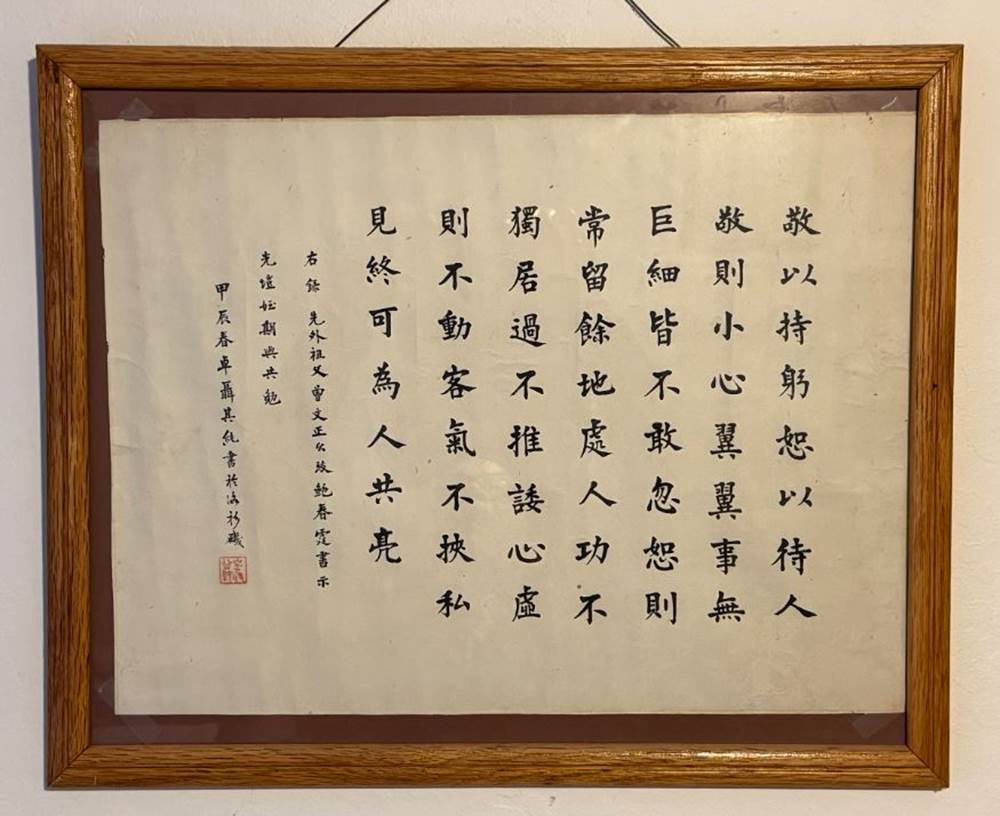 敬以持躬恕以待人
敬則小心翼翼事無
巨細皆不敢忽恕則
常留餘地處人功不
獨居過不推諉心虛
則不動客氣不挾私
見終可為人共亮
右錄先外祖父曾文正公致鮑春霆書示
先壎姪期與共勉
甲辰春卓聶其純書於洛杉磯